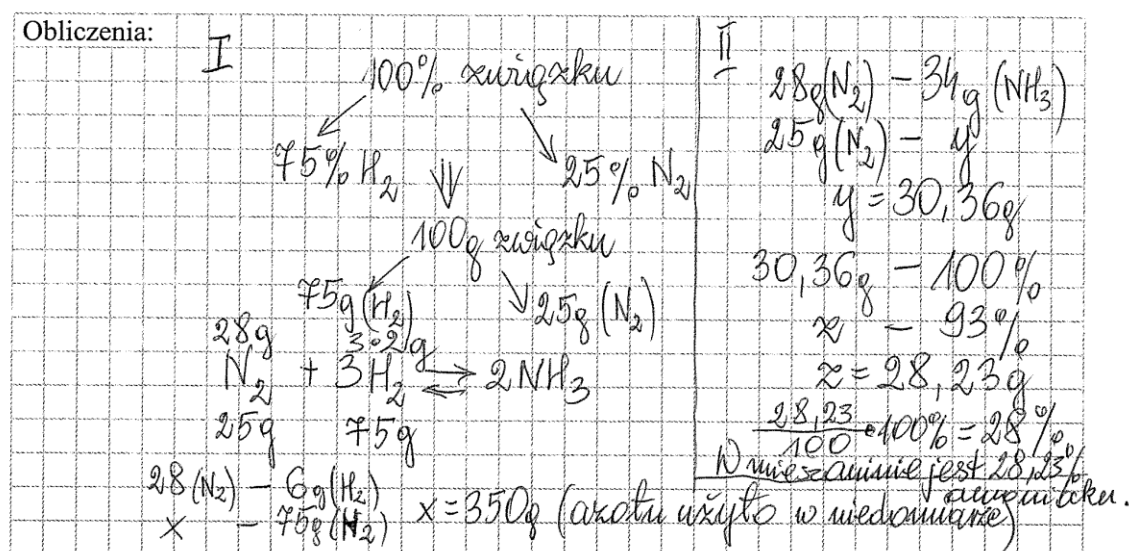 Obliczenia:
I
100% związku
75% H₂ ⇓ 25% N₂
100g związku
75g (H₂) 25g (N₂)
28g 3·2g
N₂ + 3H₂ ⇄ 2NH₃
25g 75g
28 (N₂) – 6g (H₂)
x – 75g (N₂) x = 350g (azotu użyto w niedomiarze)
II
28g (N₂) – 34g (NH₃)
25g (N₂) – y
y = 30,36g
30,36g – 100%
z – 93%
z = 28,23g
28,23/100 • 100% = 28%
W mieszaninie jest 28,23%
amoniaku.